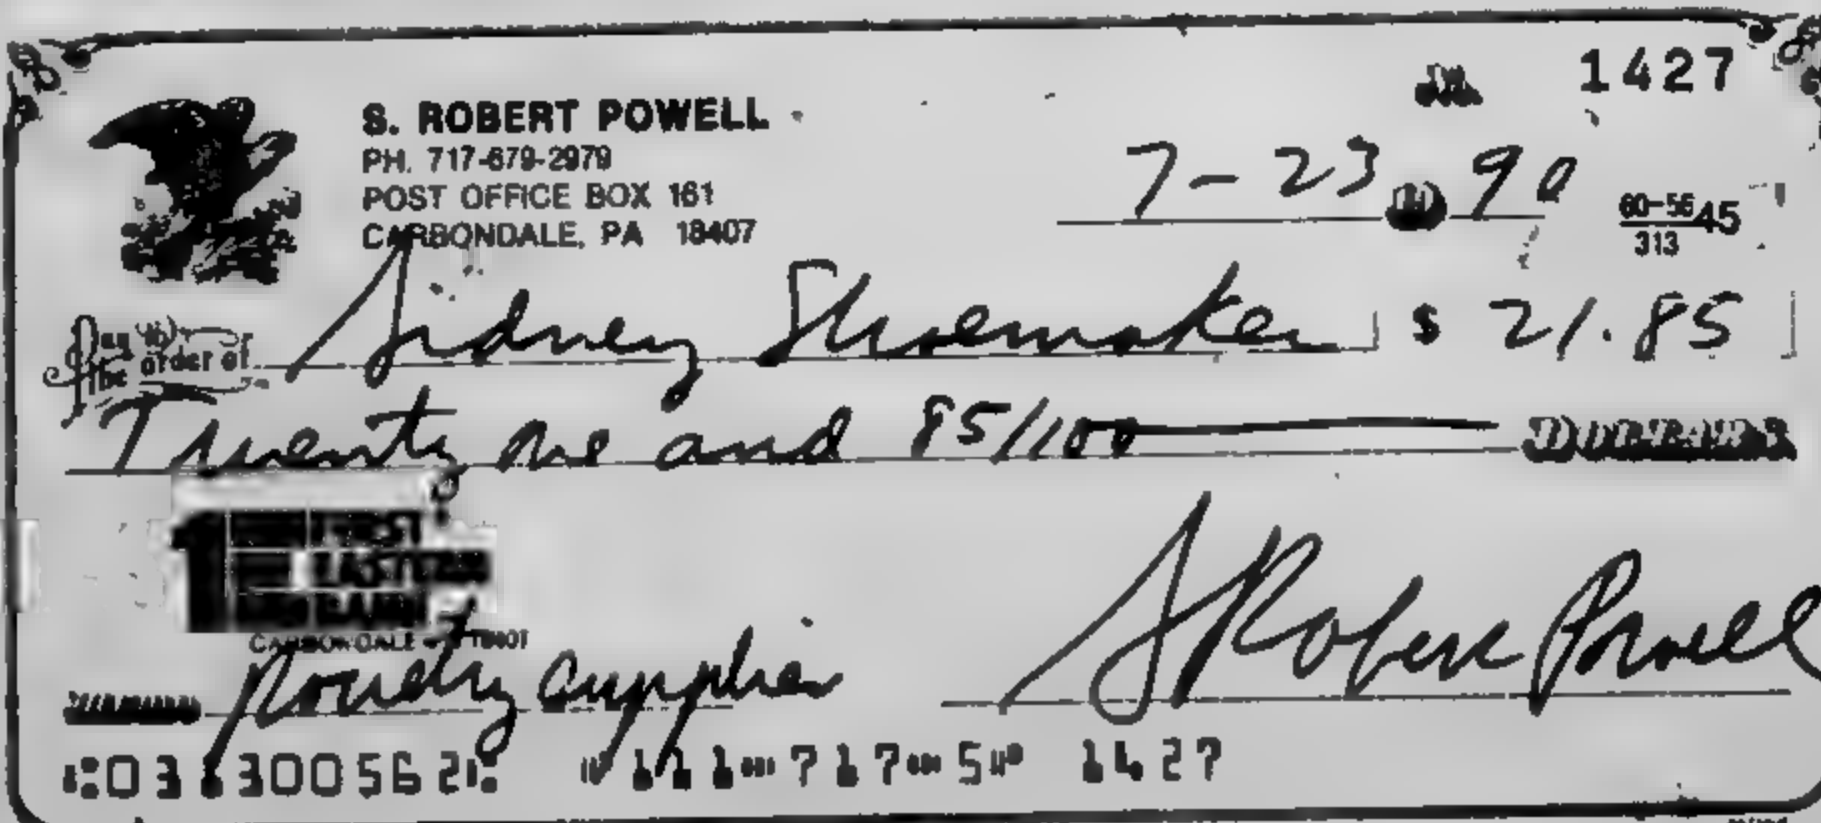 1427
S. ROBERT POWELL
PH. 717-679-2979
POST OFFICE BOX 161
CARBONDALE, PA 18407
7-23 19 90
60-5645
313
Pay to the order of Sidney Shoemaker $ 21.85
Twenty one and 85/100 DOLLARS
FIRST
EASTERN
BANK
CARBONDALE 18407
supplies
S Robert Powell
⑆031300562⑆ ⑈111⑉717⑉5⑈ 1427